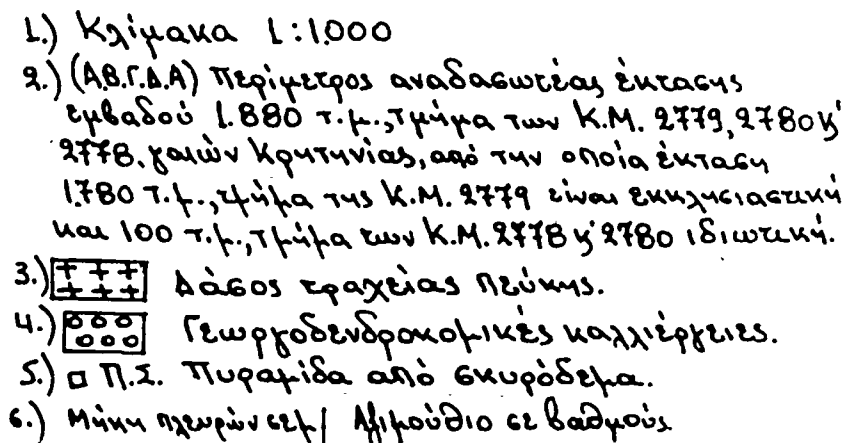 1.) Κλίμακα 1:1.000
2.) (Α.Β.Γ.Δ.Α) Περίμετρος αναδασωτέας έκτασης
εμβαδού 1.880 τ.μ., τμήμα των Κ.Μ. 2779, 2780 κ'
2778. γαιών Κρητηνίας, από την οποία έκταση
1.780 τ.μ., τμήμα της Κ.Μ. 2779 είναι εκκλησιαστική
και 100 τ.μ., τμήμα των Κ.Μ. 2778 κ' 2780 ιδιωτική.
3.) Δάσος τραχείας πεύκης.
4.) Γεωργοδενδροκομικές καλλιέργειες.
5.) Π.Σ. Πυραμίδα από σκυρόδεμα.
6.) Μήκη πλευρών σε μ/ Αζιμούθιο σε βαθμούς